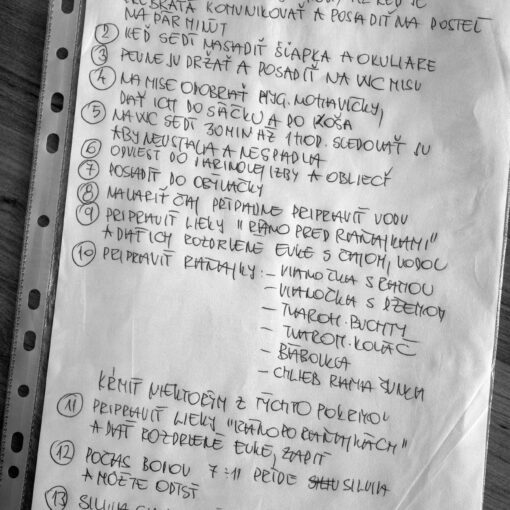 KOMUNIKOVAŤ A POSADIŤ NA POSTEĽ
NA PÁR MINÚT
2 KEĎ SEDÍ NASADIŤ ŠĽAPKA A OKULIARE
3 PEVNE JU DRŽAŤ A POSADIŤ NA WC MISU
4 NA MISE ODOBRAŤ HYG. NOHAVIČKY,
DAŤ ICH DO SÁČKU A DO KOŠA
5 NA WC SEDÍ 30MIN AŽ 1 HOD. SLEDOVAŤ JU
ABY NEUSTALA A NESPADLA
6 ODVIESŤ DO IZBY A OBLIECŤ
7 POSADIŤ DO OBÝVAČKY
8 NAVARIŤ ČAJ PRÍPADNE PRIPRAVIŤ VODU
9 PRIPRAVIŤ LIEKY "RÁNO PRED RAŇAJKAMI"
A DAŤ ICH ROZDRVENÉ EVKE S ČAJOM, VODOU
10 PRIPRAVIŤ RAŇAJKY: - VIANOČKA S RAMOU
- VIANOČKA S DŽEMOM
- TVAROH. BUCHTY
- TVAROH. KOLÁČ
- BÁBOVKA
- CHLIEB RAMA ŠUNKA
KŔMIŤ NIEKTORÝM Z TÝCHTO POKRMOV
11 PRIPRAVIŤ LIEKY "RÁNO PO RAŇAJKÁCH"
A DAŤ ROZDRVENÉ EVKE, ZAPIŤ
12 POČAS BOJOV 7:11 PRÍDE SILVIA
A MÔŽTE ODÍSŤ
13 SILVIA